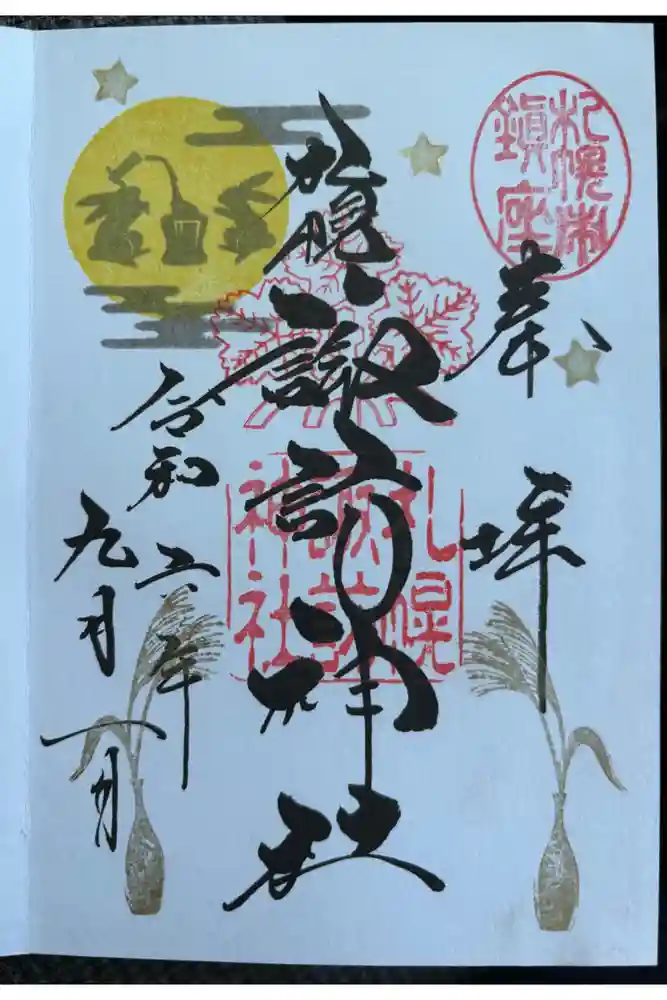 奉拝
札幌市鎮座
札幌諏訪神社
札幌諏訪神社
令和六年
九月一日